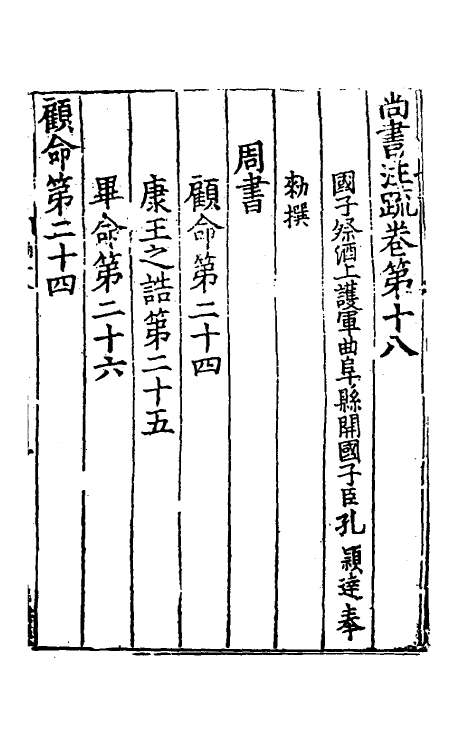 尚書注疏卷第十八
國子祭酒上護軍曲阜縣開國子臣孔 穎達奉
勑撰
周書
顧命第二十四
康王之誥第二十五
畢命第二十六
顧命第二十四